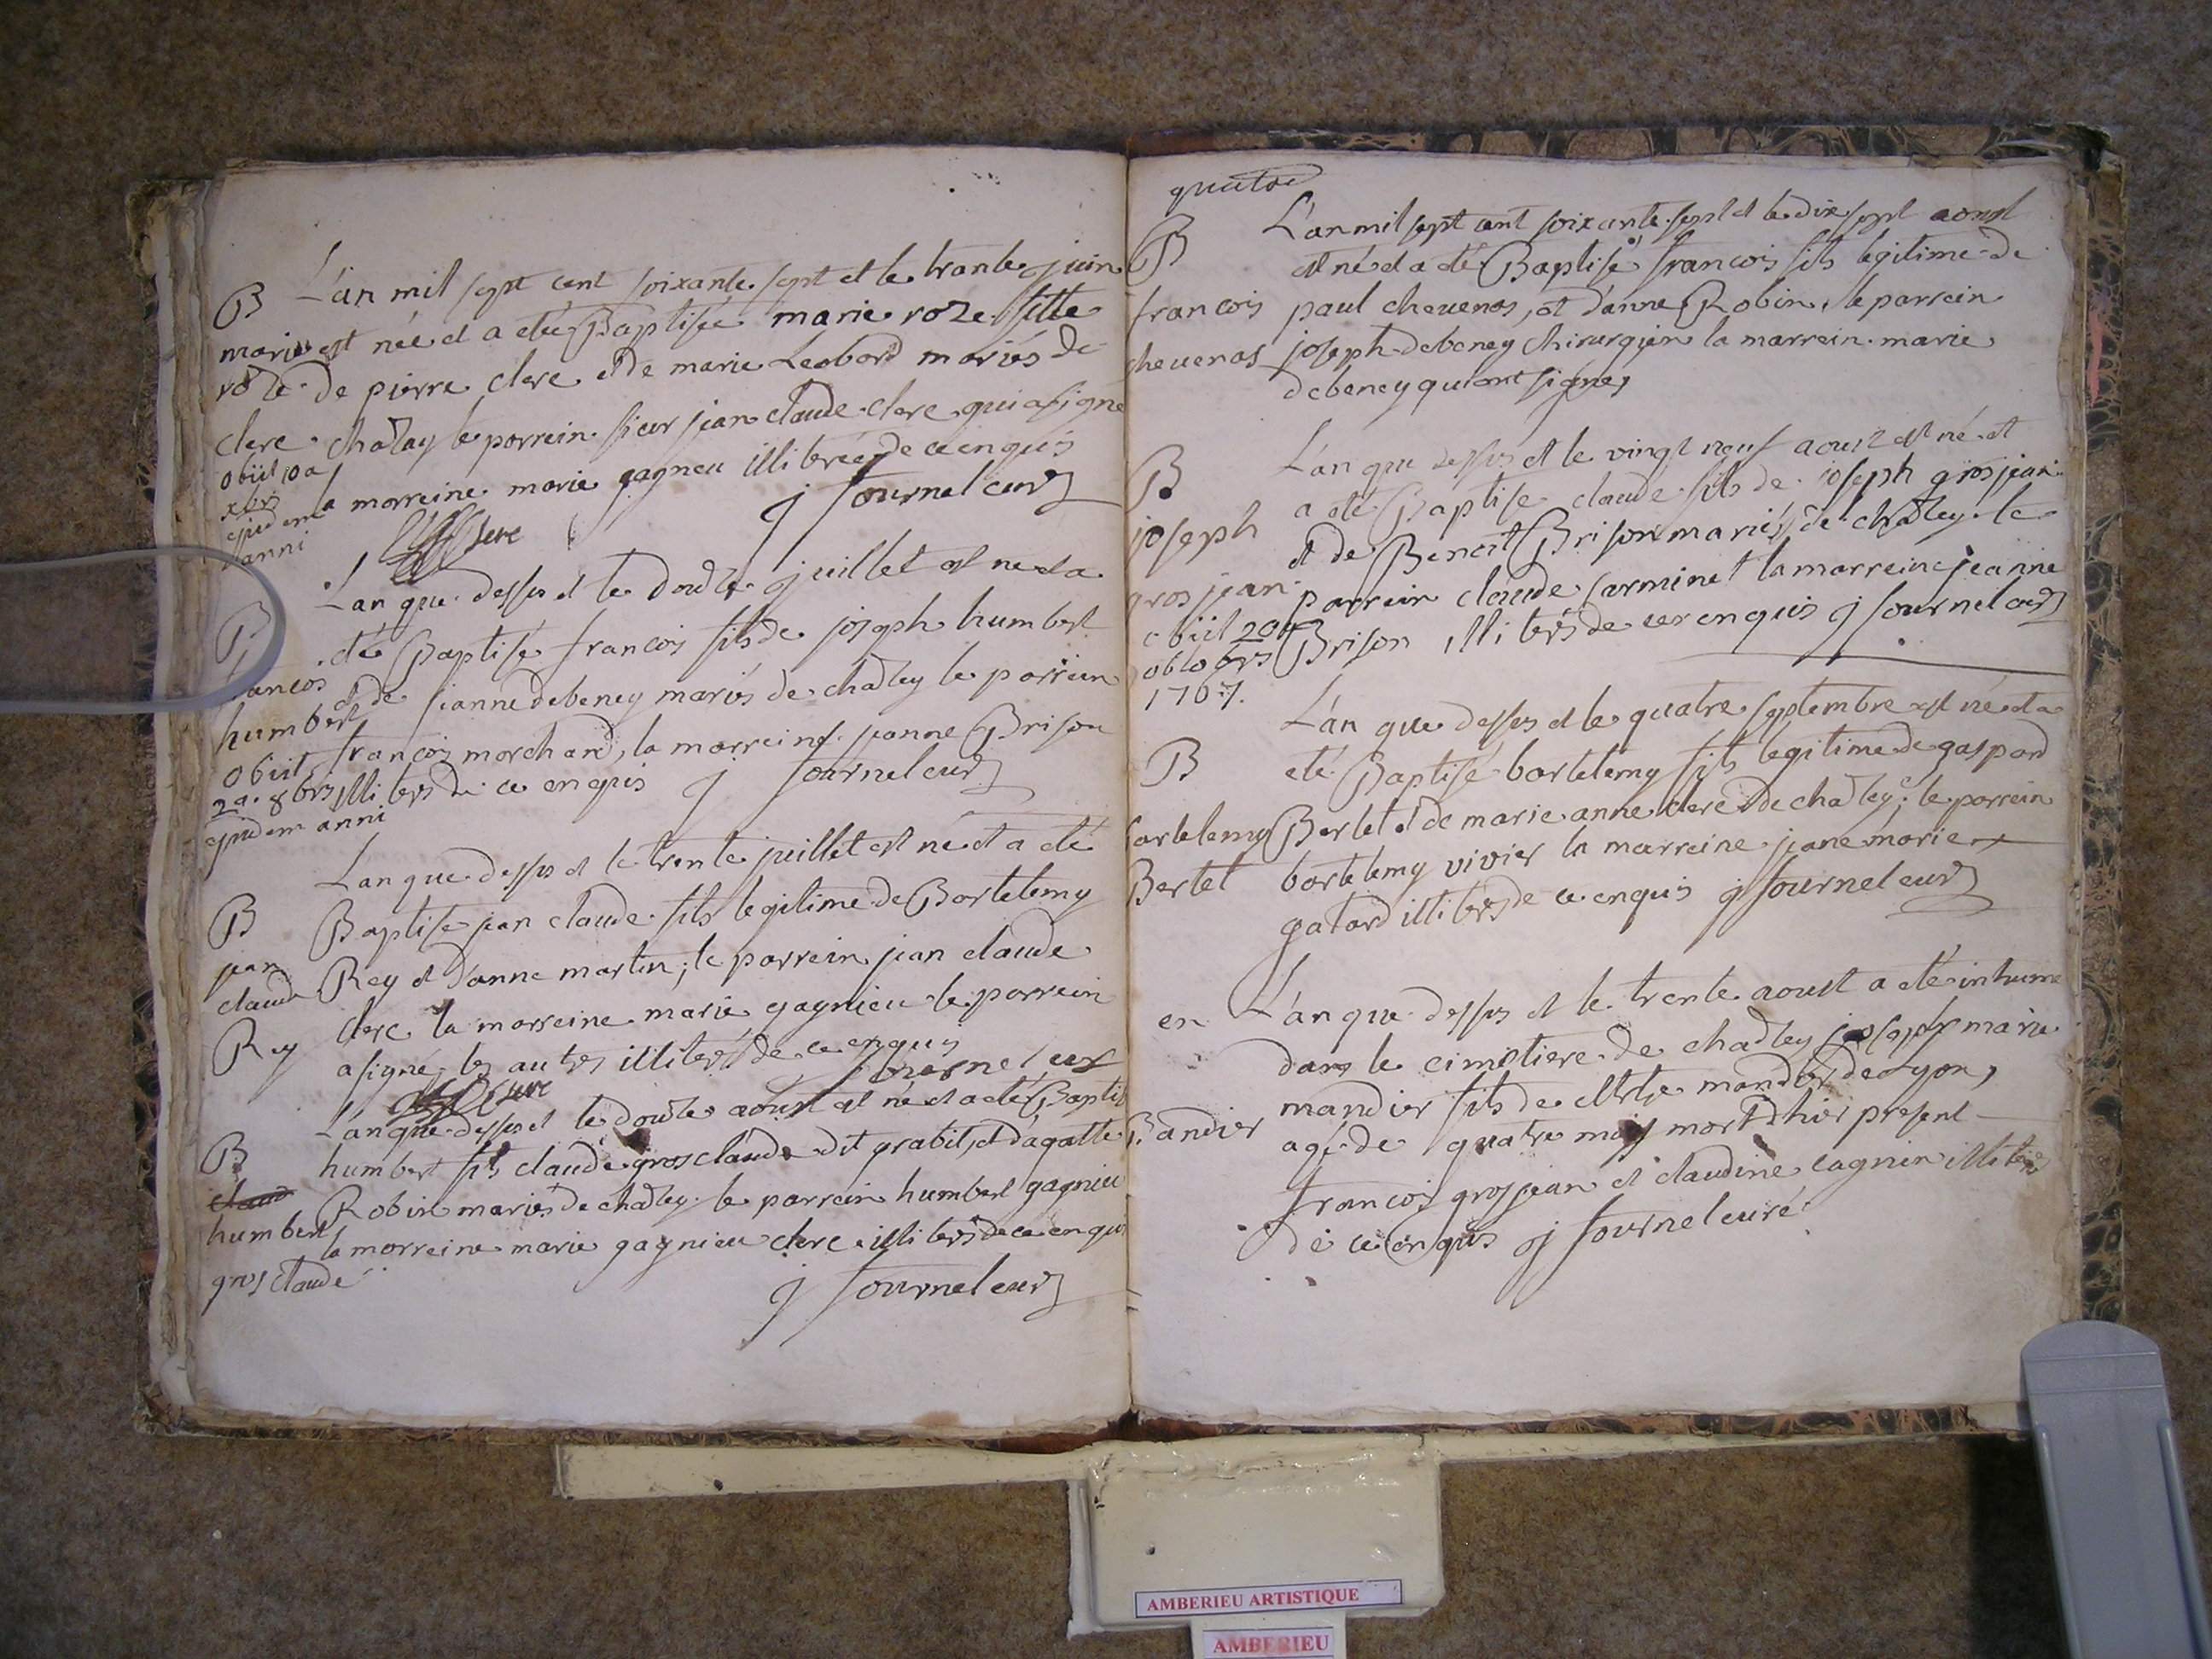 L'an mil sept cent soixante sept et le trante juin
B
marie est née et a eté Baptisée marie roze fille
roze de pierre clerc et de marie Leobard mariés de
clerc chatley le parrein sieur jean claude clerc qui a signé
obiit 10a
xbris
ejusdem
anni
la marreine marie gagneu illiterée de ce enquis
j fournel curé
Clerc
L'an que dessus et le douze juillet est né et a
B
eté Baptisé francois fils de joseph humbert
francos et de jeanne debeney mariés de chatley le parrein
humbert
francois marchand, la marreine jeanne Brison
obiit
2a. 8bris illiterés de ce enquis j fournel curé
ejusdem anni
L'an que dessus et le trente juillet est né et a eté
B
Baptisé jean claude fils legitime de Bartelemy
jean
claude Rey et d'anne martin; le parrein jean claude
Rey clerc la marreine marie gagnieu le parrein
a signé les autres illiterés de ce enquis
Clerc fournel curé
L'an que dessus et le douze aoust est né et a eté Baptisé
B humbert fils claude gros claude dit grabit, et d'agatte
claud
humbert Robin mariés de chatley le parrein humbert gagnieu
la marreine marie gagnieu clerc illiterés de ce enquis
gros claude
j fournel curé

quatre
L'an mil sept cent soixante sept et le dix sept aoust
B est né et a eté Baptisé francois fils legitime de
francois paul chevenas, et d'anne Robin, le parrein
chevenas joseph debeney chirurgien la marrein marie
debeney qui ont signé,
L'an que dessus et le vingt neuf aoust est né et
B a eté Baptisé claude fils de joseph gros jean
joseph et de Benoit Brison mariés de chatley le
gros jean parrein claude carminet la marreine jeanne
obiit 20a Brison illiterés de ce enquis j fournel curé
octobris
1767.
L'an que dessus et le quatre septembre est né et a
B eté Baptisé bartelemy fils legitime de gaspard
bartelemy Bertet et de marie anne clerc de chatley; le parrein
Bertet bartelemy vivier la marreine jeane marie
gatard illiterés de ce enquis j fournel curé
L'an que dessus et le trente aoust a eté inhumé
en dans le cimetiere de chatley joseph marie
mandier fils de mandier de lyon,
Bandier agé de quatre mois mort d'hier present
francois gros jean et claudine cagnin illiterés
de ce enquis j fournel curé
AMBERIEU ARTISTIQUE
AMBERIEU